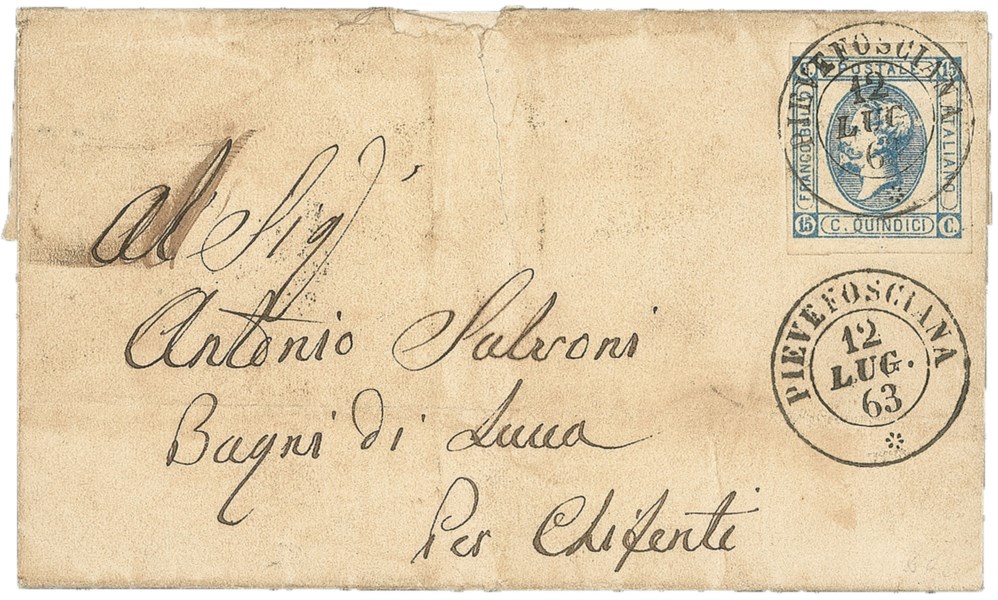 Al Sig.
Antonio Salvoni
Bagni di Lucca
Per Chifenti
PIEVEFOSCIANA
12
LUG
6
FRANCO BOLLO
POSTALE
ITALIANO
15
C. QUINDICI
C.
PIEVEFOSCIANA
12
LUG.
63